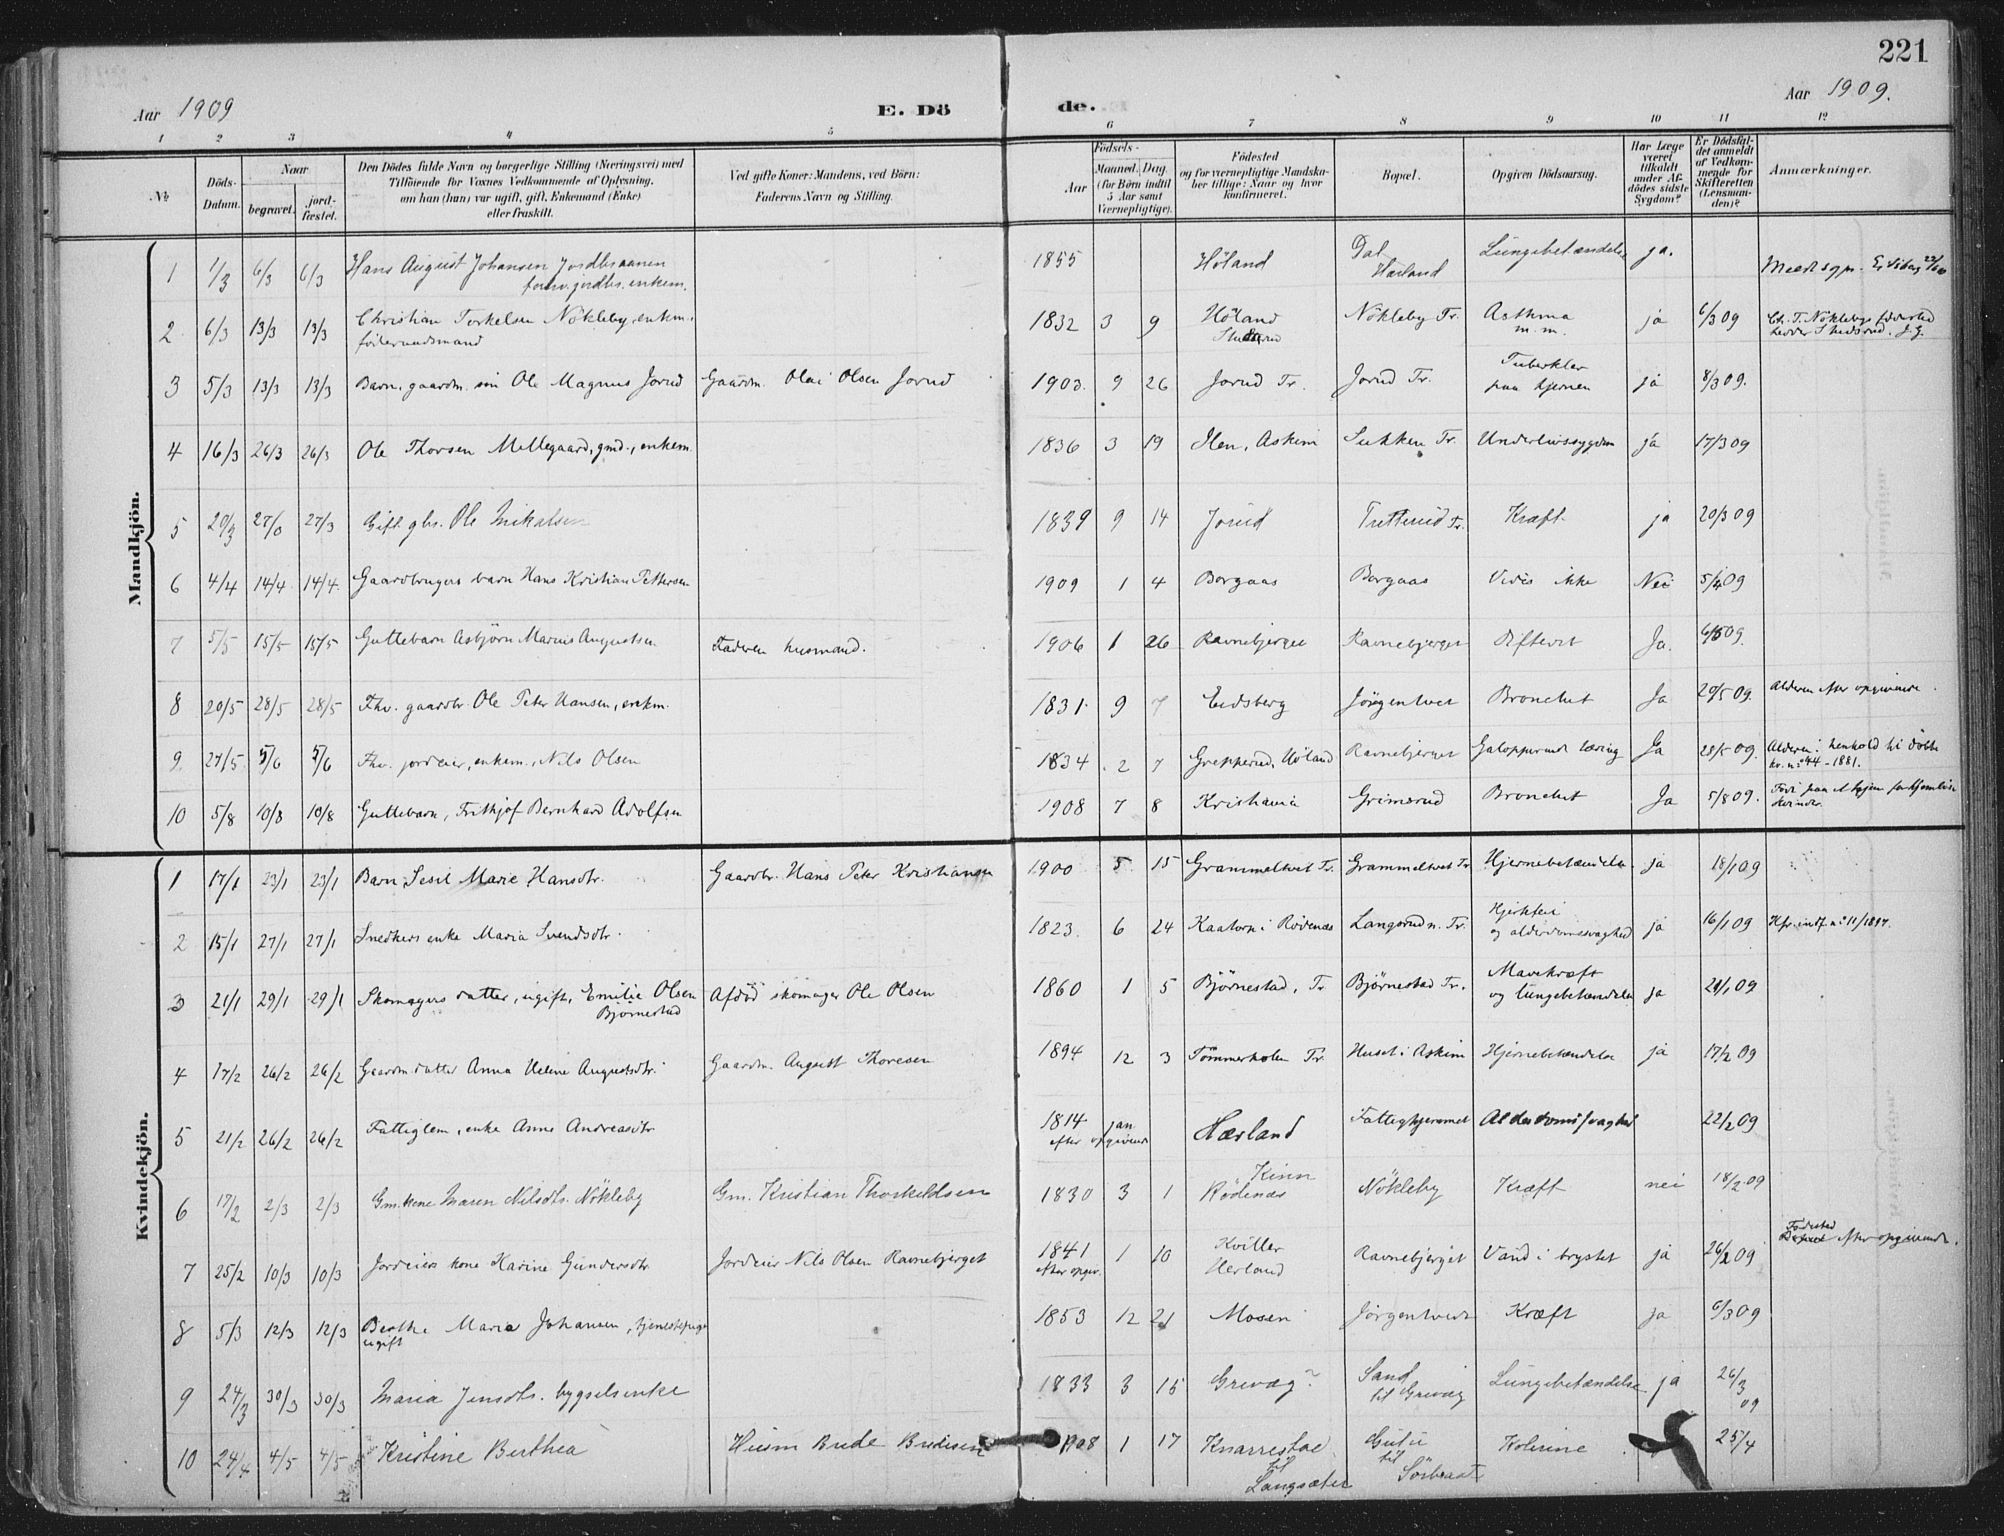 221
Aar 1909
E. Dö
de.
Aar 1909.
1 2 3 4 5 6 7 8 9 10 11 12
№
Döds-Datum.
Naar
begravet.
jord-fæstet.
Den Dödes fulde Navn og borgerlige Stilling (Næringsvei) med
Tilföiende for Voxnes Vedkommende af Oplysning,
om han (hun) var ugift, gift, Enkemand (Enke)
eller fraskilt.
Ved gifte Koner: Mandens, ved Börn:
Faderens Navn og Stilling.
Födsels-
Aar
Maaned. Dag.
(for Börn indtil
5 Aar samt
Værnepligtige).
Födested
og for værnepligtige Mandska-
ber tillige: Naar og hvor
konfirmeret.
Bopæl.
Opgiven Dödsaarsag.
Har Læge
været
tilkaldt
under Af-
dödes sidste
Sygdom?
Er Dödsfal-
det anmeldt
af Vedkom-
mende for
Skifteretten
(Lensman-
den)?
Anmærkninger.
Mandkjön.
1 1/3 6/3 6/3 Hans August Johansen 1855 Höland Dal Hærland Lungebetændelse ja.
forhv. jordbr. enkem.
2 6/3 13/3 13/3 Christian Torkelsen Nökleby, enkm. 1832 3 9 Höland Nökleby Tr. Asthma m.m. ja 6/3 09
föderaadsmand
3 5/3 13/3 13/3 Barn, gaardm. sön Ole Magnus Jorud Gaardm. Olai Olsen Jorud 1903. 9 26 Jorud Tr. Jorud Tr. Tuberkler paa hjernen ja 8/3 09.
4 16/3 26/3 26/3 Ole Thorsen Mellegaard, gmd., enkem. 1836 3 19 Ilen, Askim Sukken Tr. Underlivssygdom ja 17/3 09
5 20/3 27/3 27/3 Gift gbr. Ole Mikalsen 1839 9 14 Jorud Tutterud Tr. Kræft. ja 20/3 09
6 4/4 14/4 14/4 Gaardbrugers barn Hans Kristian Pettersen 1909 1 4 Borgaas Borgaas Vides ikke Nei 5/4 09
7 5/5 15/5 15/5 Guttebarn Asbjörn Marius Augustsen Faderen husmand. 1906 1 26 Ravnebjerget Ravnebjerget Difterit Ja. 6/5 09.
8 20/5 28/5 28/5 Fhv. gaardbr. Ole Peter Hansen, enkm. 1831. 9 7 Eidsberg Jörgentvet Bronchit Ja 20/5 09 Alderen efter opgivende.
9 27/5 5/6 5/6 Fhv. jordeier, enkem., Nils Olsen 1834. 2 7 Grepperud, Höland Ravnebjerget Galopperende tæring Ja 28/5 09. Alderen i henhold til
kr. no 44 - 1881.
10 5/8 10/8 10/8 Guttebarn, Fritjof Bernhard Adolfsen 1908 7 8 Kristiania Grimsrud Bronchit Ja 5/8 09.
Kvindekjön.
1 17/1 23/1 23/1 Barn Sesil Marie Hansdtr. Gaardbr. Hans Peter Kristiansen 1900 5 15 Grammeltvet Tr. Grammeltvet Tr. Hjernebetændelse. ja 18/1 09
2 15/1 27/1 27/1 Snedkers enke Maria Svendsdtr. 1823. 6 24 Kaatorn i Rödenæs Langsrud n. Tr. Hjertefeil og alderdomssvaghed ja 16/1 09 Kfr. indf. no 11/1897.
3 21/1 29/1 29/1 Skomagers datter, ugift, Emilie Olsen Afdöd skomager Ole Olsen 1860 1 5 Björnestad, Tr Björnestad Tr. Mavekræft og lungebetændelse ja 21/1 09
Björnestad
4 17/2 26/2 26/2 Gaardm. datter Anna Helene Augustsdtr. Gaardm. August Thoresen 1894 12 3 Tömmerholen Tr. Huset i Askim Hjernebetændelse ja 17/2 09
5 21/2 26/2 26/2 Fattiglem, enke Anne Andreasdtr 1814 jan efter opgivende Hærland Fattighjemmet Alderdomssvaghed 22/2 09
6 17/2 2/3 2/3 Gm. kone Maren Nilsdtr. Nökleby Gm. Kristian Thorkeldsen 1830 3 1 Kinn Rödenæs Nökleby Kræft nei 18/2 09
7 25/2 10/3 10/3 Jordeiers kone Karine Gundersdtr Jordeier Nils Olsen Ravnebjerget 1841 efter opgiv. 1 10 Kviller Herland Ravnebjerget Vand i brystet ja 26/2 09 Födested efter opgivende.
8 5/3 12/3 12/3 Berthe Maria Johansen, tjenestepige 1853 12 21 Mosen Jörgentvedt Kræft ja 6/3 09
ugift
9 24/3 30/3 30/3 Maria Jensdtr. bygselsenke 1833 3 15 Grevæg? Sand til Grevæg Lungebetændelse ja 26/3 09
10 24/4 4/5 4/5 Kristine Berthea Husm Brede Bredesen 1908 1 17 Knarrestad til Langsæter Kolerine 25/4